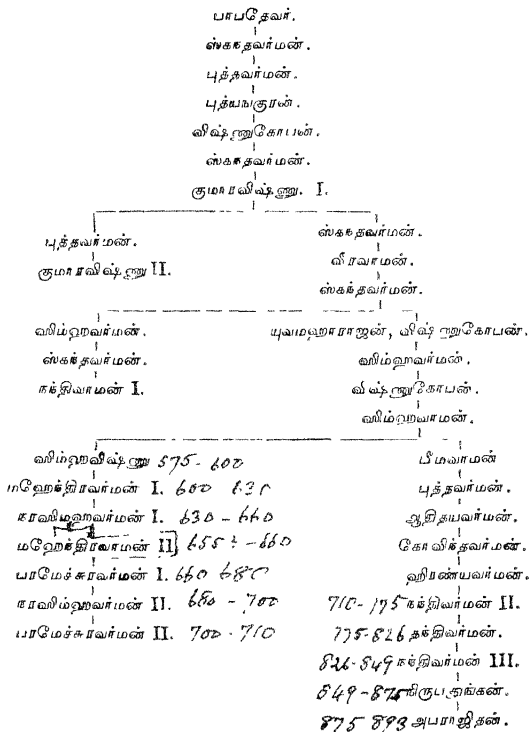 பாபதேவர்.
ஸ்கந்தவர்மன்.
புத்தவர்மன்.
புத்யங்குரன்.
விஷ்ணுகோபன்.
ஸ்கந்தவர்மன்.
குமாரவிஷ்ணு. I.
புத்தவர்மன்.
குமாரவிஷ்ணு II.
ஸ்கந்தவர்மன்.
வீரவர்மன்.
ஸ்கந்தவர்மன்.
ஸிம்ஹவர்மன்.
ஸ்கந்தவர்மன்.
நந்திவர்மன் I.
யுவமஹாராஜன், விஷ்ணுகோபன்.
ஸிம்ஹவர்மன்.
விஷ்ணுகோபன்.
ஸிம்ஹவர்மன்.
ஸிம்ஹவிஷ்ணு 575-600
மஹேந்திரவர்மன் I. 600 630
நரஸிம்ஹவர்மன் I. 630-660
மஹேந்திரவர்மன் II 655?-660
பரமேச்சுரவர்மன் I. 660 680
நரஸிம்ஹவர்மன் II. 680-700
பரமேச்சுரவர்மன் II. 700-710
பீமவர்மன்
புத்தவர்மன்.
ஆதித்யவர்மன்.
கோவிந்தவர்மன்.
ஹிரண்யவர்மன்.
710-775 நந்திவர்மன் II.
775-826 தந்திவர்மன்.
826-849 நந்திவர்மன் III.
849-875 நிருபதுங்கன்.
875 893 அபராஜிதன்.